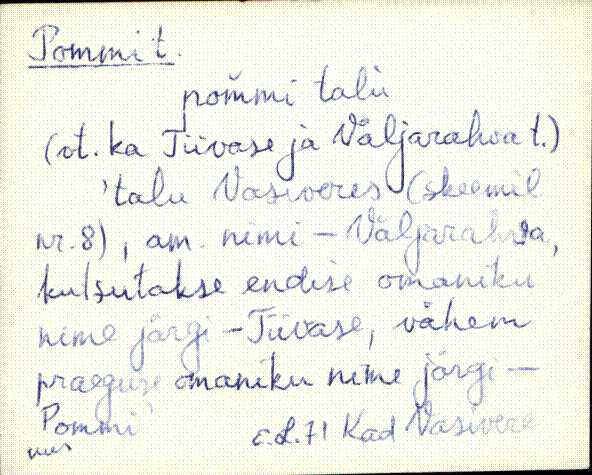 Pommi t.
pom̆mi talù
(vt. ka Tiivase ja Väljarahva t.)
'talu Vasiveres (skeemil
nr. 8), am. nimi – Väljarahva,
kutsutakse endise omaniku
nime järgi – Tiivase, vähem
praeguse omaniku nime järgi –
Pommi'
E.L. 71 Kad Vasivere